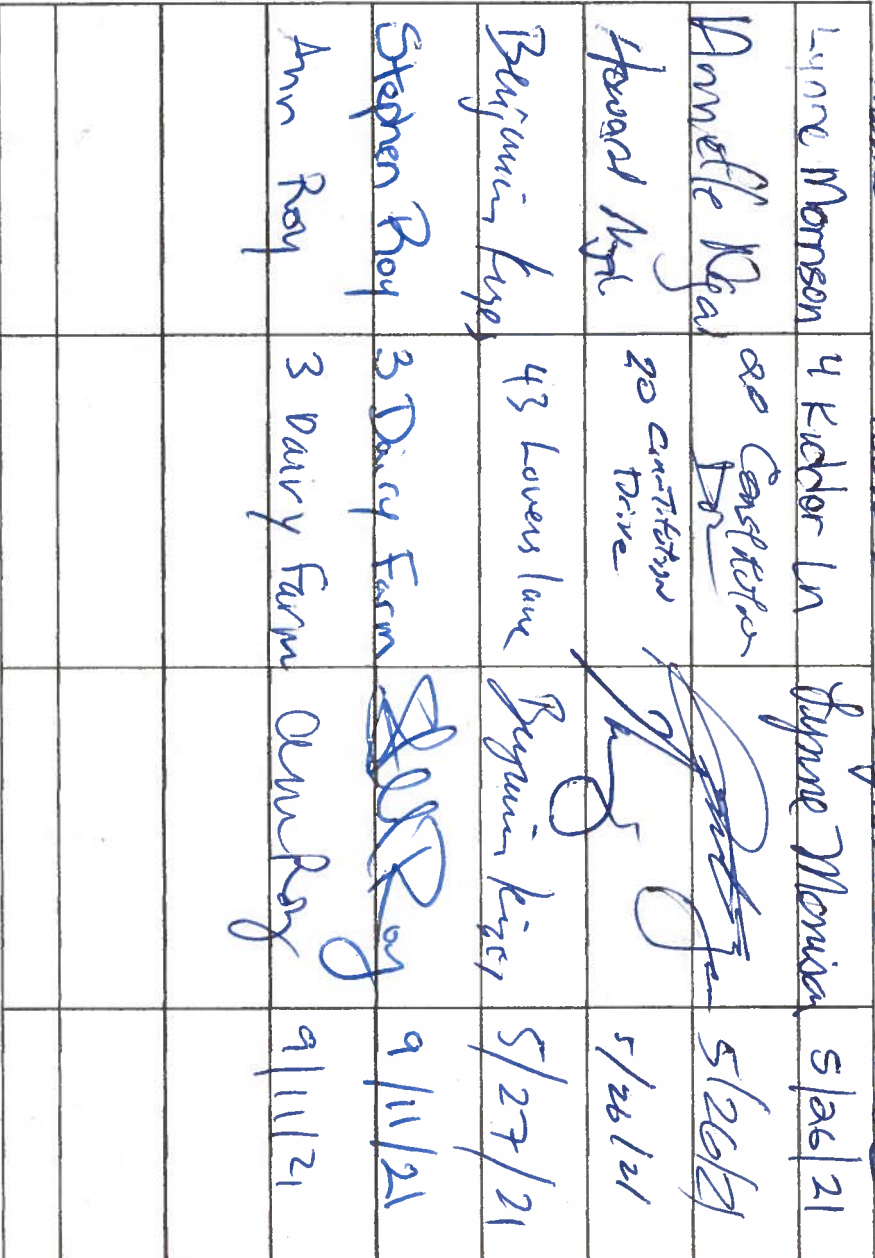 Lynne Morrison 4 Kidder Ln Lynne Morrison 5/26/21
Annette 20 Constitution Dr 5/26/21
Howard 20 Constitution Drive 5/26/21
Benjamin 43 Lovers lane Benjamin 5/27/21
Stephen Roy 3 Dairy Farm Roy 9/11/21
Ann Roy 3 Dairy Farm Ann Roy 9/11/21